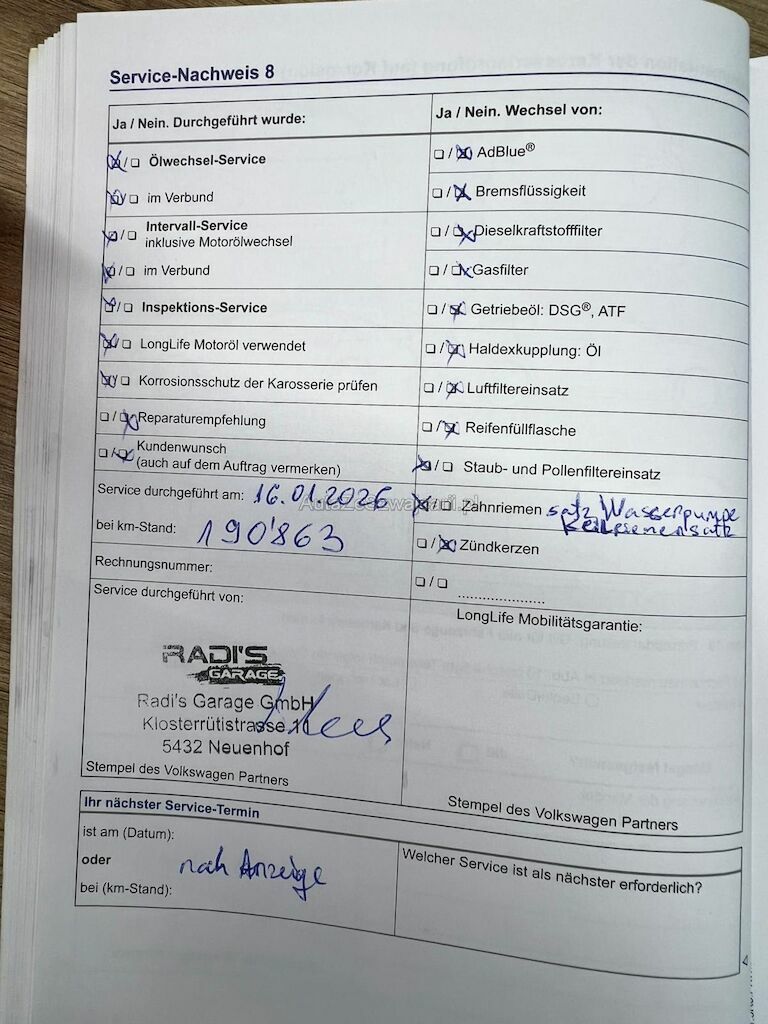 Service-Nachweis 8
Ja / Nein. Durchgeführt wurde:
Ölwechsel-Service
im Verbund
Intervall-Service
inklusive Motorölwechsel
im Verbund
Inspektions-Service
LongLife Motoröl verwendet
Korrosionsschutz der Karosserie prüfen
Reparaturempfehlung
Kundenwunsch
(auch auf dem Auftrag vermerken)
Service durchgeführt am: 16.01.2026
bei km-Stand: 190'863
Rechnungsnummer:
Service durchgeführt von:
RADI'S
GARAGE
Radi's Garage GmbH
Klosterrütistrasse 11
5432 Neuenhof
Stempel des Volkswagen Partners
Ja / Nein. Wechsel von:
AdBlue®
Bremsflüssigkeit
Dieselkraftstofffilter
Gasfilter
Getriebeöl: DSG®, ATF
Haldexkupplung: Öl
Luftfiltereinsatz
Reifenfüllflasche
Staub- und Pollenfiltereinsatz
Zahnriemen satz Wasserpumpe
Zündkerzen
LongLife Mobilitätsgarantie:
Stempel des Volkswagen Partners
Ihr nächster Service-Termin
ist am (Datum):
oder
nach Anzeige
bei (km-Stand):
Welcher Service ist als nächster erforderlich?